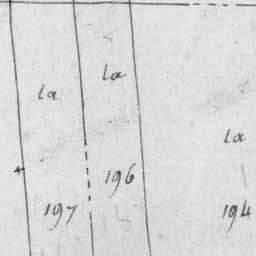 la
la
la
196
197
194